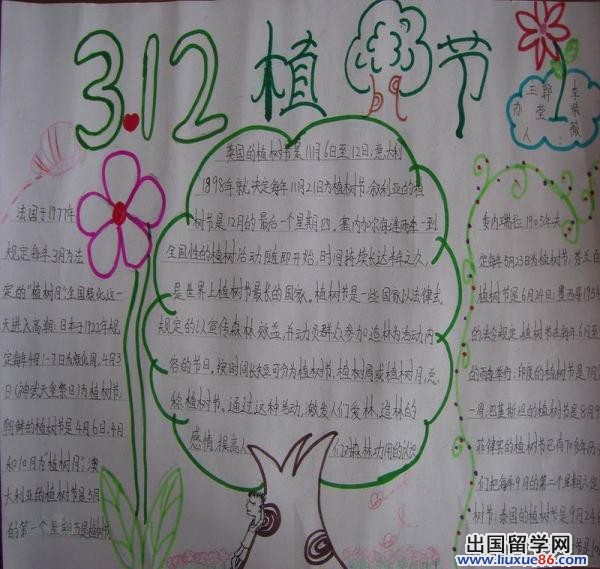 3.12 植树节
办人
王郭莹
李紫薇
英国的植树节是11月6日至12日;意大利
1898年就决定每年11月21日为植树节.叙利亚的植
树节是12月的最后一个星期四。塞内加尔每逢雨季一到
全国性的植树活动随即开始,时间持续长达半年之久,
是世界上植树节最长的国家。植树节是一些国家以法律式
规定的以宣传森林效益,并动员群众参加造林为活动内
容的节日。按时间长短可分为植树节,植树周或植树月,总
称植树节。通过这种活动,激发人们爱林、造林的
感情,提高人们对森林功用的认识
法国于1977年
规定每年3月为法
定的"植树月".全国绿化这一
天进入高潮;日本于1922年规
定每年4月1-7日为绿化周,4月3
日(神武天皇祭日)为植树节;
朝鲜的植树节是4月6日,4月
和10月为"植树月";澳
大利亚的植树节是5月
的第一个星期五是植树节
委内瑞拉1905年决
定每年5月23日为植树节,芬兰的
植树节是6月24日;墨西哥1954
的法令规定,植树节在每年6月至
的雨季举行;印度的植树节是7月
一周,巴基斯坦的植树节是8月9
菲律宾的植树节已有70多年历
们把每年9月的第二个星期六定
树节;泰国的植树节是9月24
出国留学网
www.liuxue86.com